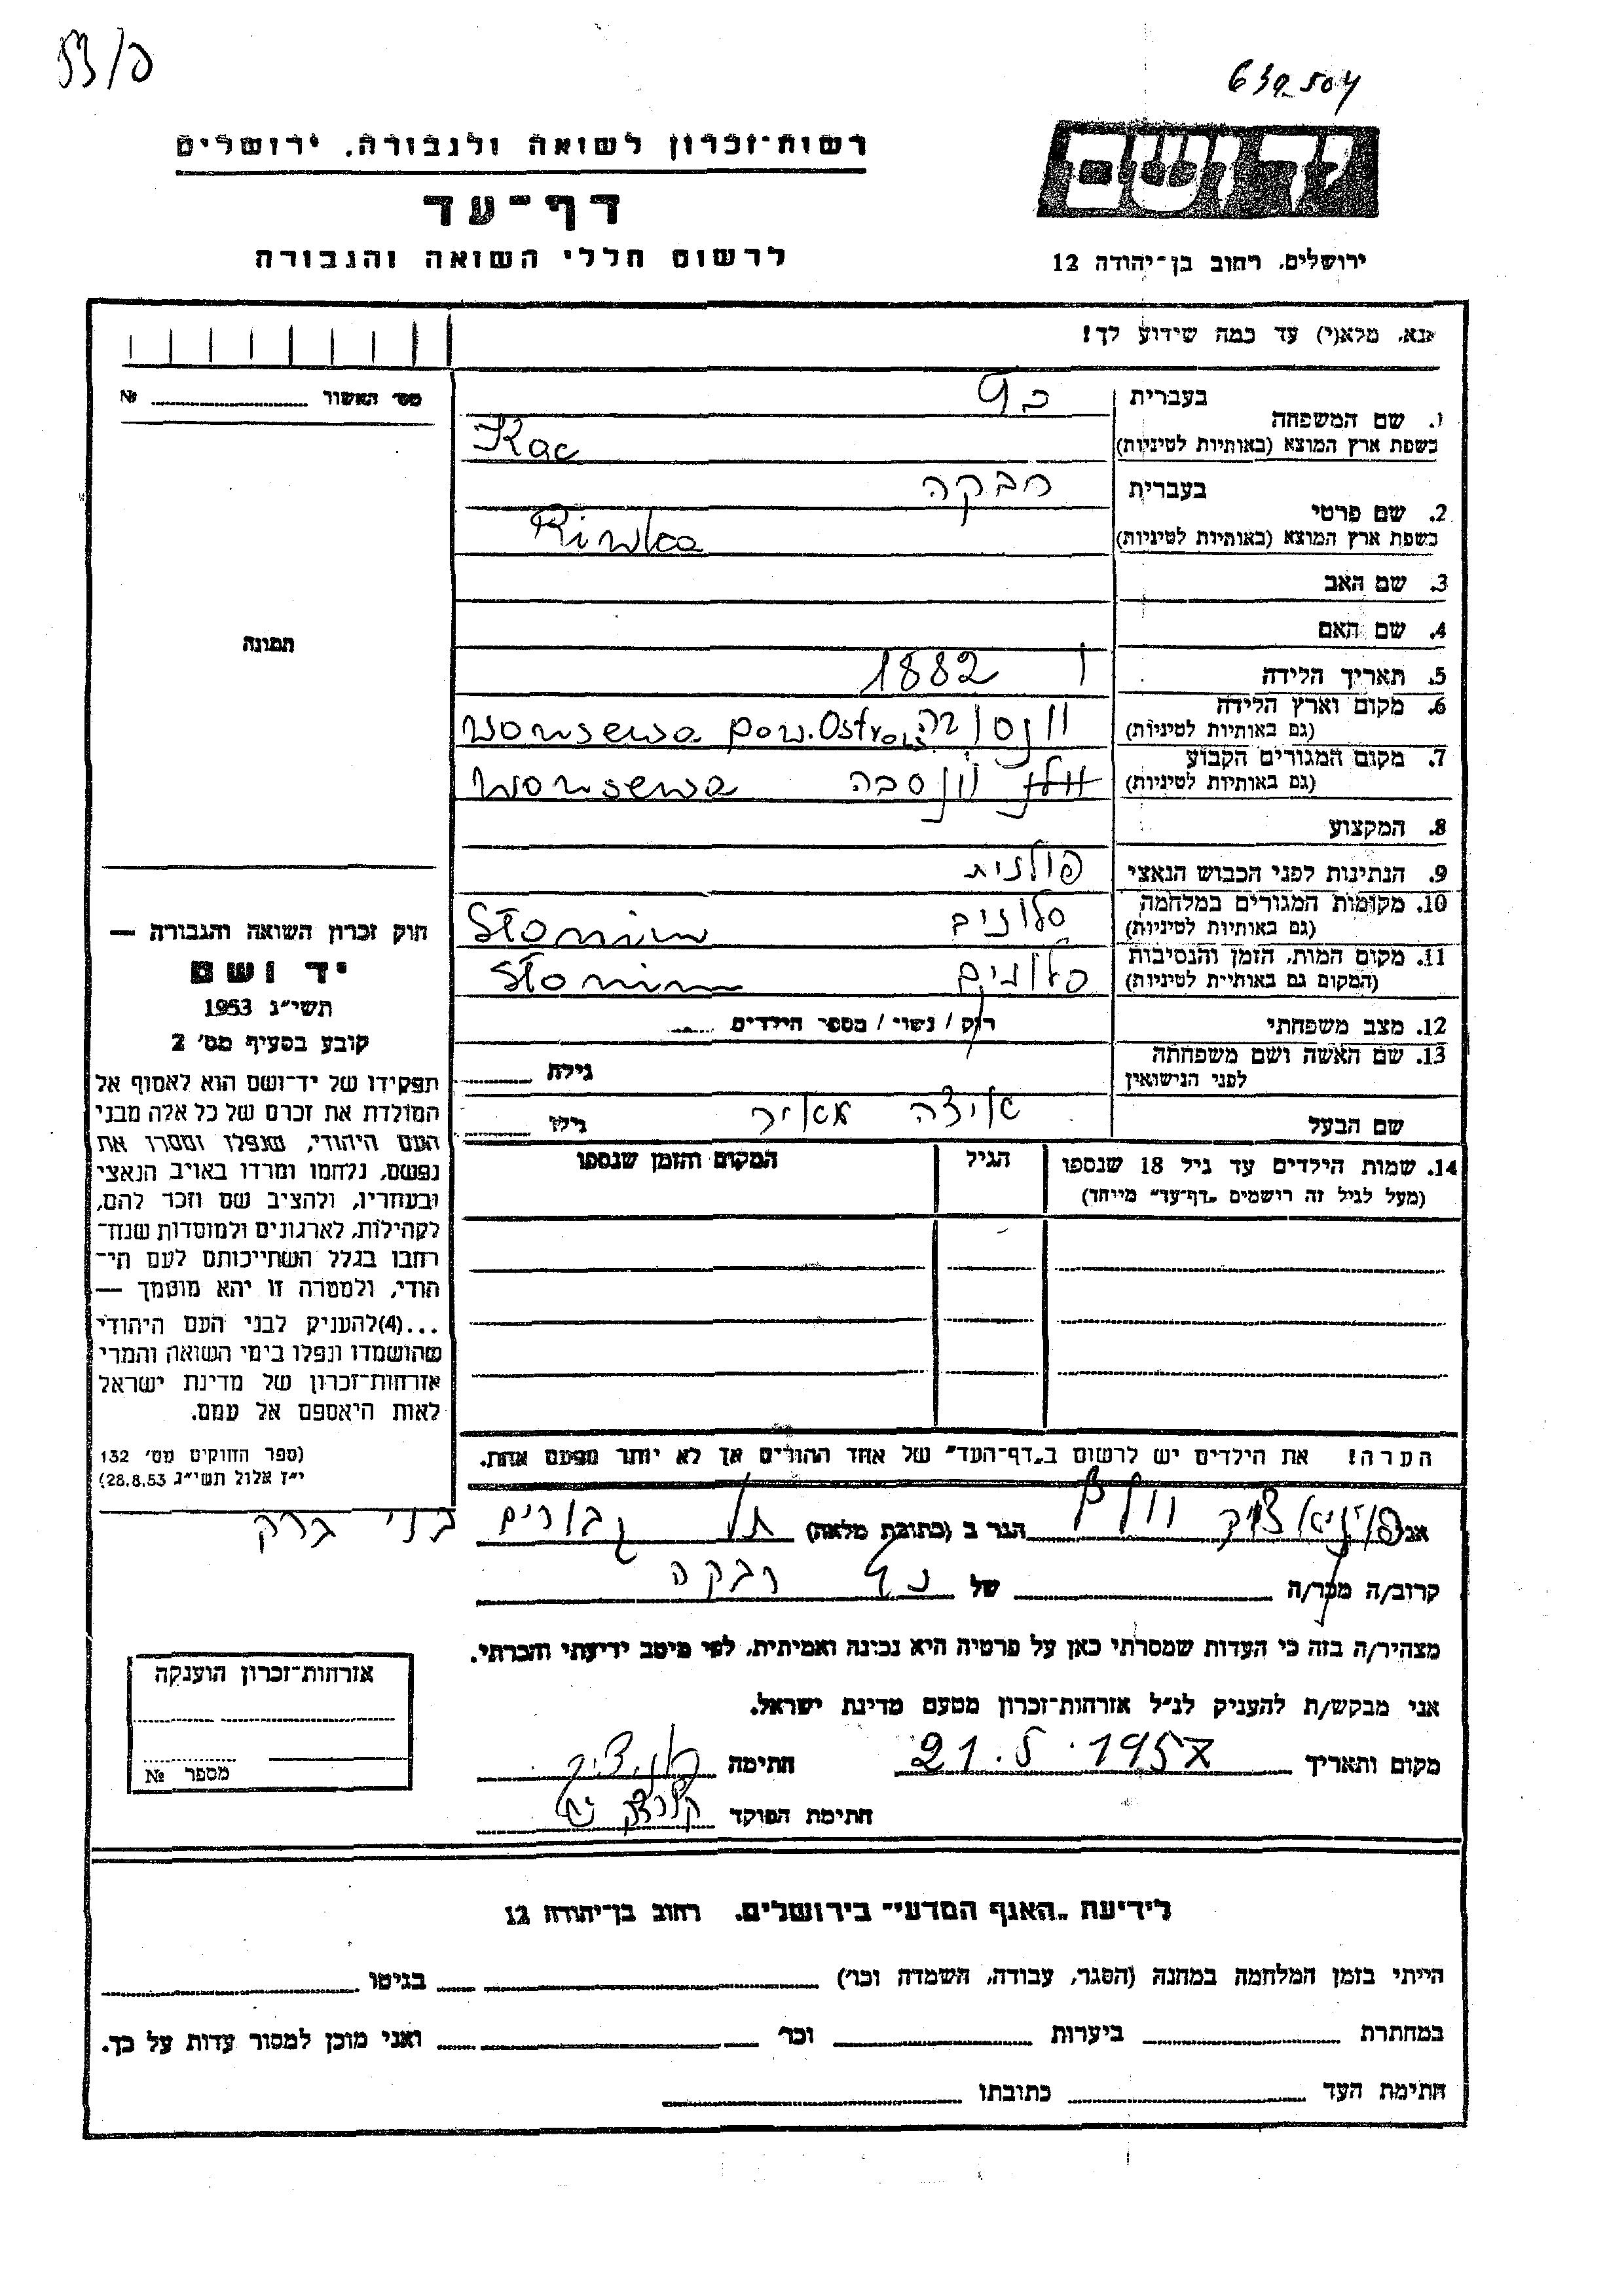 639504
רשות־זכרון לשואה ולגבורה. ירושלים
דף־עד
לרשום חללי השואה והגבורה
ירושלים. רחוב בן־יהודה 12
אנא. מלא(י) עד כמה שידוע לך!
מס׳ האשור № 
1. שם המשפחה
בעברית כץ
בשפת ארץ המוצא (באותיות לטיניות) Kac
2. שם פרטי
בעברית רבקה
בשפת ארץ המוצא (באותיות לטיניות) Riwka
3. שם האב
4. שם האם
5. תאריך הלידה 1882
6. מקום וארץ הלידה
(גם באותיות לטיניות) Wonsewa pow. Ostrow
7. מקום המגורים הקבוע
(גם באותיות לטיניות) ונסבה Wonsewa
8. המקצוע
9. הנתינות לפני הכבוש הנאצי פולנית
10. מקומות המגורים במלחמה
(גם באותיות לטיניות) סלונים Słonim
11. מקום המות. הזמן והנסיבות
(המקום גם באותיית לטיניות) סלונים Słonim
12. מצב משפחתי רוק / נשוי / מספר הילדים
13. שם האשה ושם משפחתה
לפני הנישואין גילה
שם הבעל מאיר גילו
14. שמות הילדים עד גיל 18 שנספו הגיל המקום והזמן שנספו
(מעל לגיל זה רושמים „דף־עד״ מייחד)
הערה! את הילדים יש לרשום ב„דף־העד״ של אחד ההורים אך לא יותר מפעם אחת.
תמונה
חוק זכרון השואה והגבורה —
יד ושם
תשי״ג 1953
קובע בסעיף מס׳ 2
תפקידו של יד־ושם הוא לאסוף אל
המולדת את זכרם של כל אלה מבני
העם היהודי, שנפלו ומסרו את
נפשם, נלחמו ומרדו באויב הנאצי
ובעוזריו, ולהציב שם וזכר להם,
לקהילות, לארגונים ולמוסדות שנח־
רחבו בגלל השתייכותם לעם הי־
הודי, ולמטרה זו יהא מוסמך —
...(4)להעניק לבני העם היהודי
שהושמדו ונפלו בימי השואה והמרי
אזרחות־זכרון של מדינת ישראל
לאות היאספם אל עמם.
(ספר החוקים מס׳ 132
י״ז אלול תשי״ג 28.8.53)
אני הגר ב (כתובת מלאה) תל גבורים בני ברק
קרוב/ה מכר/ה של כץ רבקה
מצהיר/ה בזה כי העדות שמסרתי כאן על פרטיה היא נכונה ואמיתית, לפי מיטב ידיעתי והכרתי.
אני מבקש/ת להעניק לנ״ל אזרחות־זכרון מטעם מדינת ישראל.
מקום ותאריך 21.5.1957 חתימה
חתימת הפוקד
אזרחות־זכרון הוענקה
מספר №
לידיעת „האגף המדעי״ בירושלים. רחוב בן־יהודה 12
הייתי בזמן המלחמה במחנה (הסגר, עבודה, השמדה וכר׳) בגיטו
במחתרת ביערות וכר׳ ואני מוכן למסור עדות על כך.
חתימת העד כתובתו